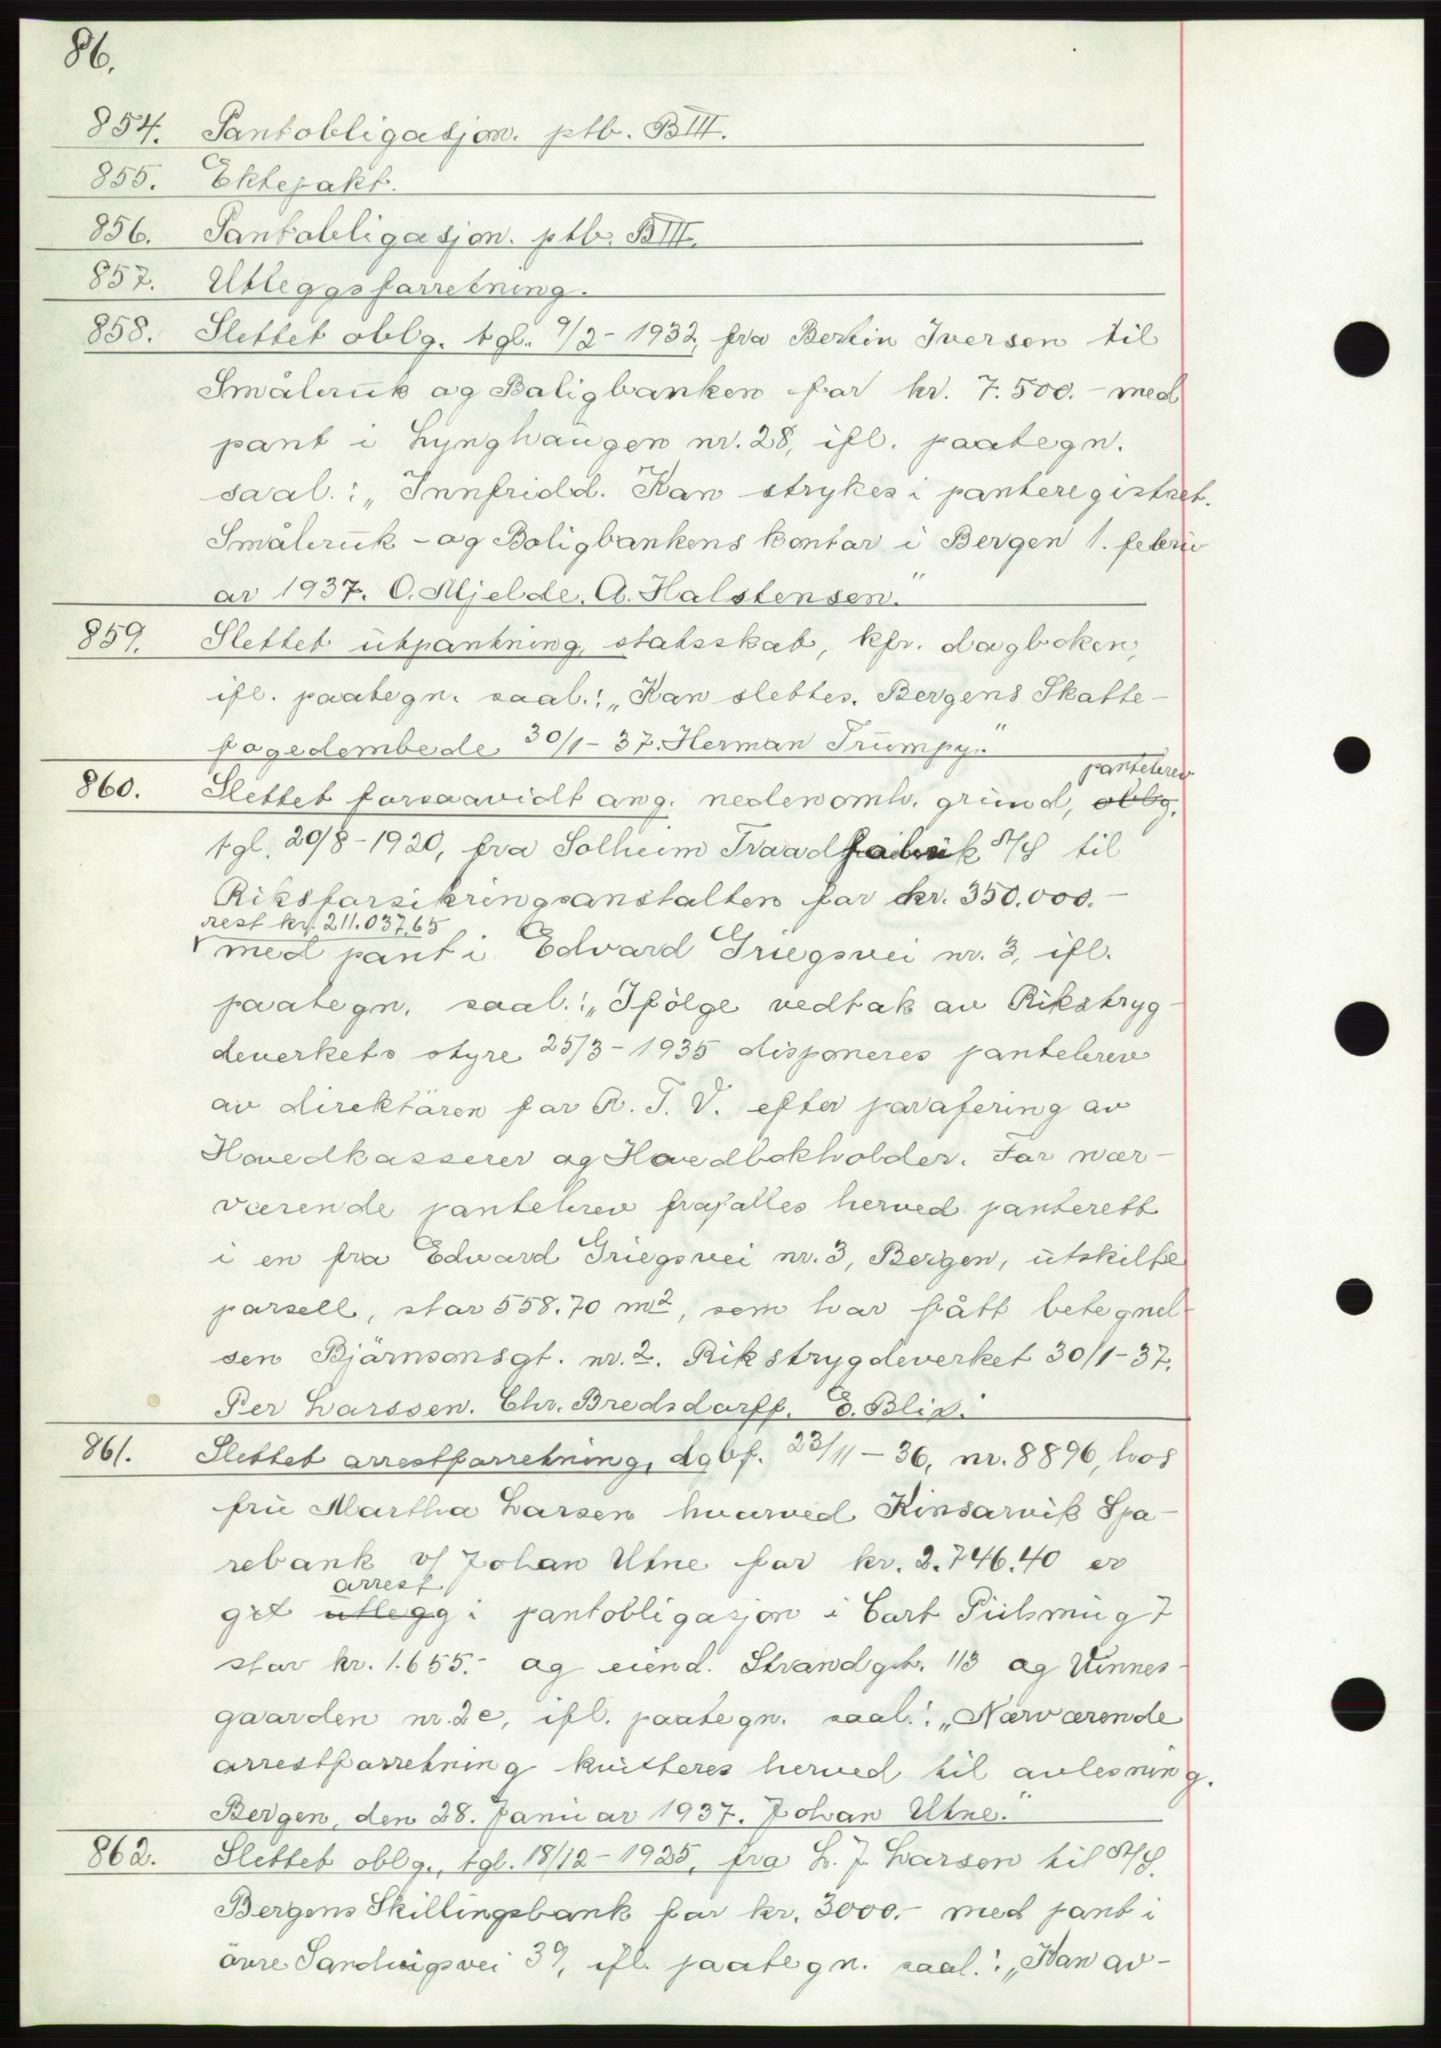 86.
854. Pantobligasjon. ptb. BIII.
855. Ektepakt.
856. Pantobligasjon. ptb. BIII.
857. Utleggsforretning.
858. Slettet oblg. tgl. 9/2-1932, fra Bertin Iversen til
Småbruk og Boligbanken for kr. 7.500.- med
pant i Lynghaugen nr. 28, ifl. paategn.
saal.: „Innfridd. Kan strykes i panteregistret.
Småbruk- og Boligbankens kontor i Bergen 1. febru
ar 1937. O. Mjelde. A. Halstensen."
859. Slettet utpantning, statsskat, kfr. dagboken,
ifl. paategn. saal.: „Kan slettes. Bergens Skatte-
fogedembede 30/1-37. Herman Trumpy."
860. Slettet forsaavidt ang. nedenomh. grund, oblg. pantebrev
tgl. 20/8-1920, fra Solheim Traadfabrik A/S til
Riksforsikringsanstalten for kr. 350.000.-
rest kr. 211.037,65
med pant i Edvard Griegsvei nr. 3, ifl.
paategn. saal.: „Ifölge vedtak av Rikstryg-
deverkets styre 25/3-1935 disponeres pantebrev
av direktören for R. T. V. efter parafering av
Hovedkasserer og Hovedbokholder. For nær-
værende pantebrev frafalles herved panterett
i en fra Edvard Griegsvei nr. 3, Bergen, utskilt
parsell, stor 558.70 m², som har fått betegnel-
sen Björnsonsgt. nr. 2. Rikstrygdeverket 30/1-37.
Per Larssen. Chr. Bredsdorff. E. Blix.
861. Slettet arrestforretning, dgbf. 23/11-36, nr. 8896, hos
fru Martha Larsen hvorved Kinsarvik Spa-
rebank v/ Johan Utne for kr. 2.746.40 er
arrest
git utlegg i pantobligasjon i Cort Piilsmug 7
stor kr. 1.655.- og eiend. Strandgt. 113 og Vinnes-
gaarden nr. 2c, ifl. paategn. saal.: „Nærværende
arrestforretning kvitteres herved til avlesning.
Bergen, den 28. Januar 1937. Johan Utne."
862. Slettet oblg., tgl. 18/12-1925, fra L. J. Larsen til A/S.
Bergens Skillingsbank for kr. 3000.- med pant i
övre Sandvigsvei 39, ifl. paategn. saal.: „Kan av-